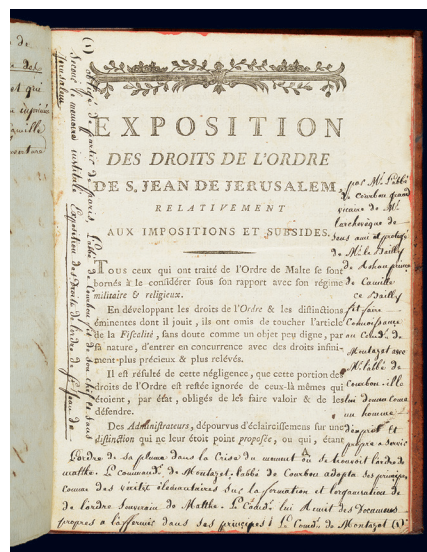 EXPOSITION
DES DROITS DE L'ORDRE
DE S. JEAN DE JERUSALEM,
RELATIVEMENT
AUX IMPOSITIONS ET SUBSIDES.
Tous ceux qui ont traité de l'Ordre de Malte se sont
bornés à le considérer sous son rapport avec son régime
militaire & religieux.
En développant les droits de l'Ordre & les distinctions
éminentes dont il jouit, ils ont omis de toucher l'article
de la Fiscalité, sans doute comme un objet peu digne, par
sa nature, d'entrer en concurrence avec des droits infini-
ment plus précieux & plus relevés.
Il est résulté de cette négligence, que cette portion des
droits de l'Ordre est restée ignorée de ceux-là mêmes qui
étoient, par état, obligés de les faire valoir & de les
défendre.
Des Administrateurs, dépourvus d'éclaircissemens sur une
distinction qui ne leur étoit point proposée, ou qui, étant
par Mr. l'abbé
de Courbon grand
vicaire de Mr.
l'archevêque de
Sens ami et protégé
de Mr. le Bailly
de Rohan prince
de Camille
ce Bailly
fit faire
Connoissance
au Comdr. de
Montazet avec
Mr. l'abbé de
Courbon. il le
lui donna comme
un homme
d'esprit et
propre a servir
l'ordre de sa plume dans la Crise du moment où se trouvoit l'ordre de
malthe. Le Command. de Montazet, l'abbé de Courbon adopta ses principes
Comme des vérités élémentaires sur la formation et l'organisation de
de l'ordre Souverain de Malthe. Le Comdr. lui Remit des Documens
propres a l'affermir dans ses principes. Le Comdr. de Montazet (1)